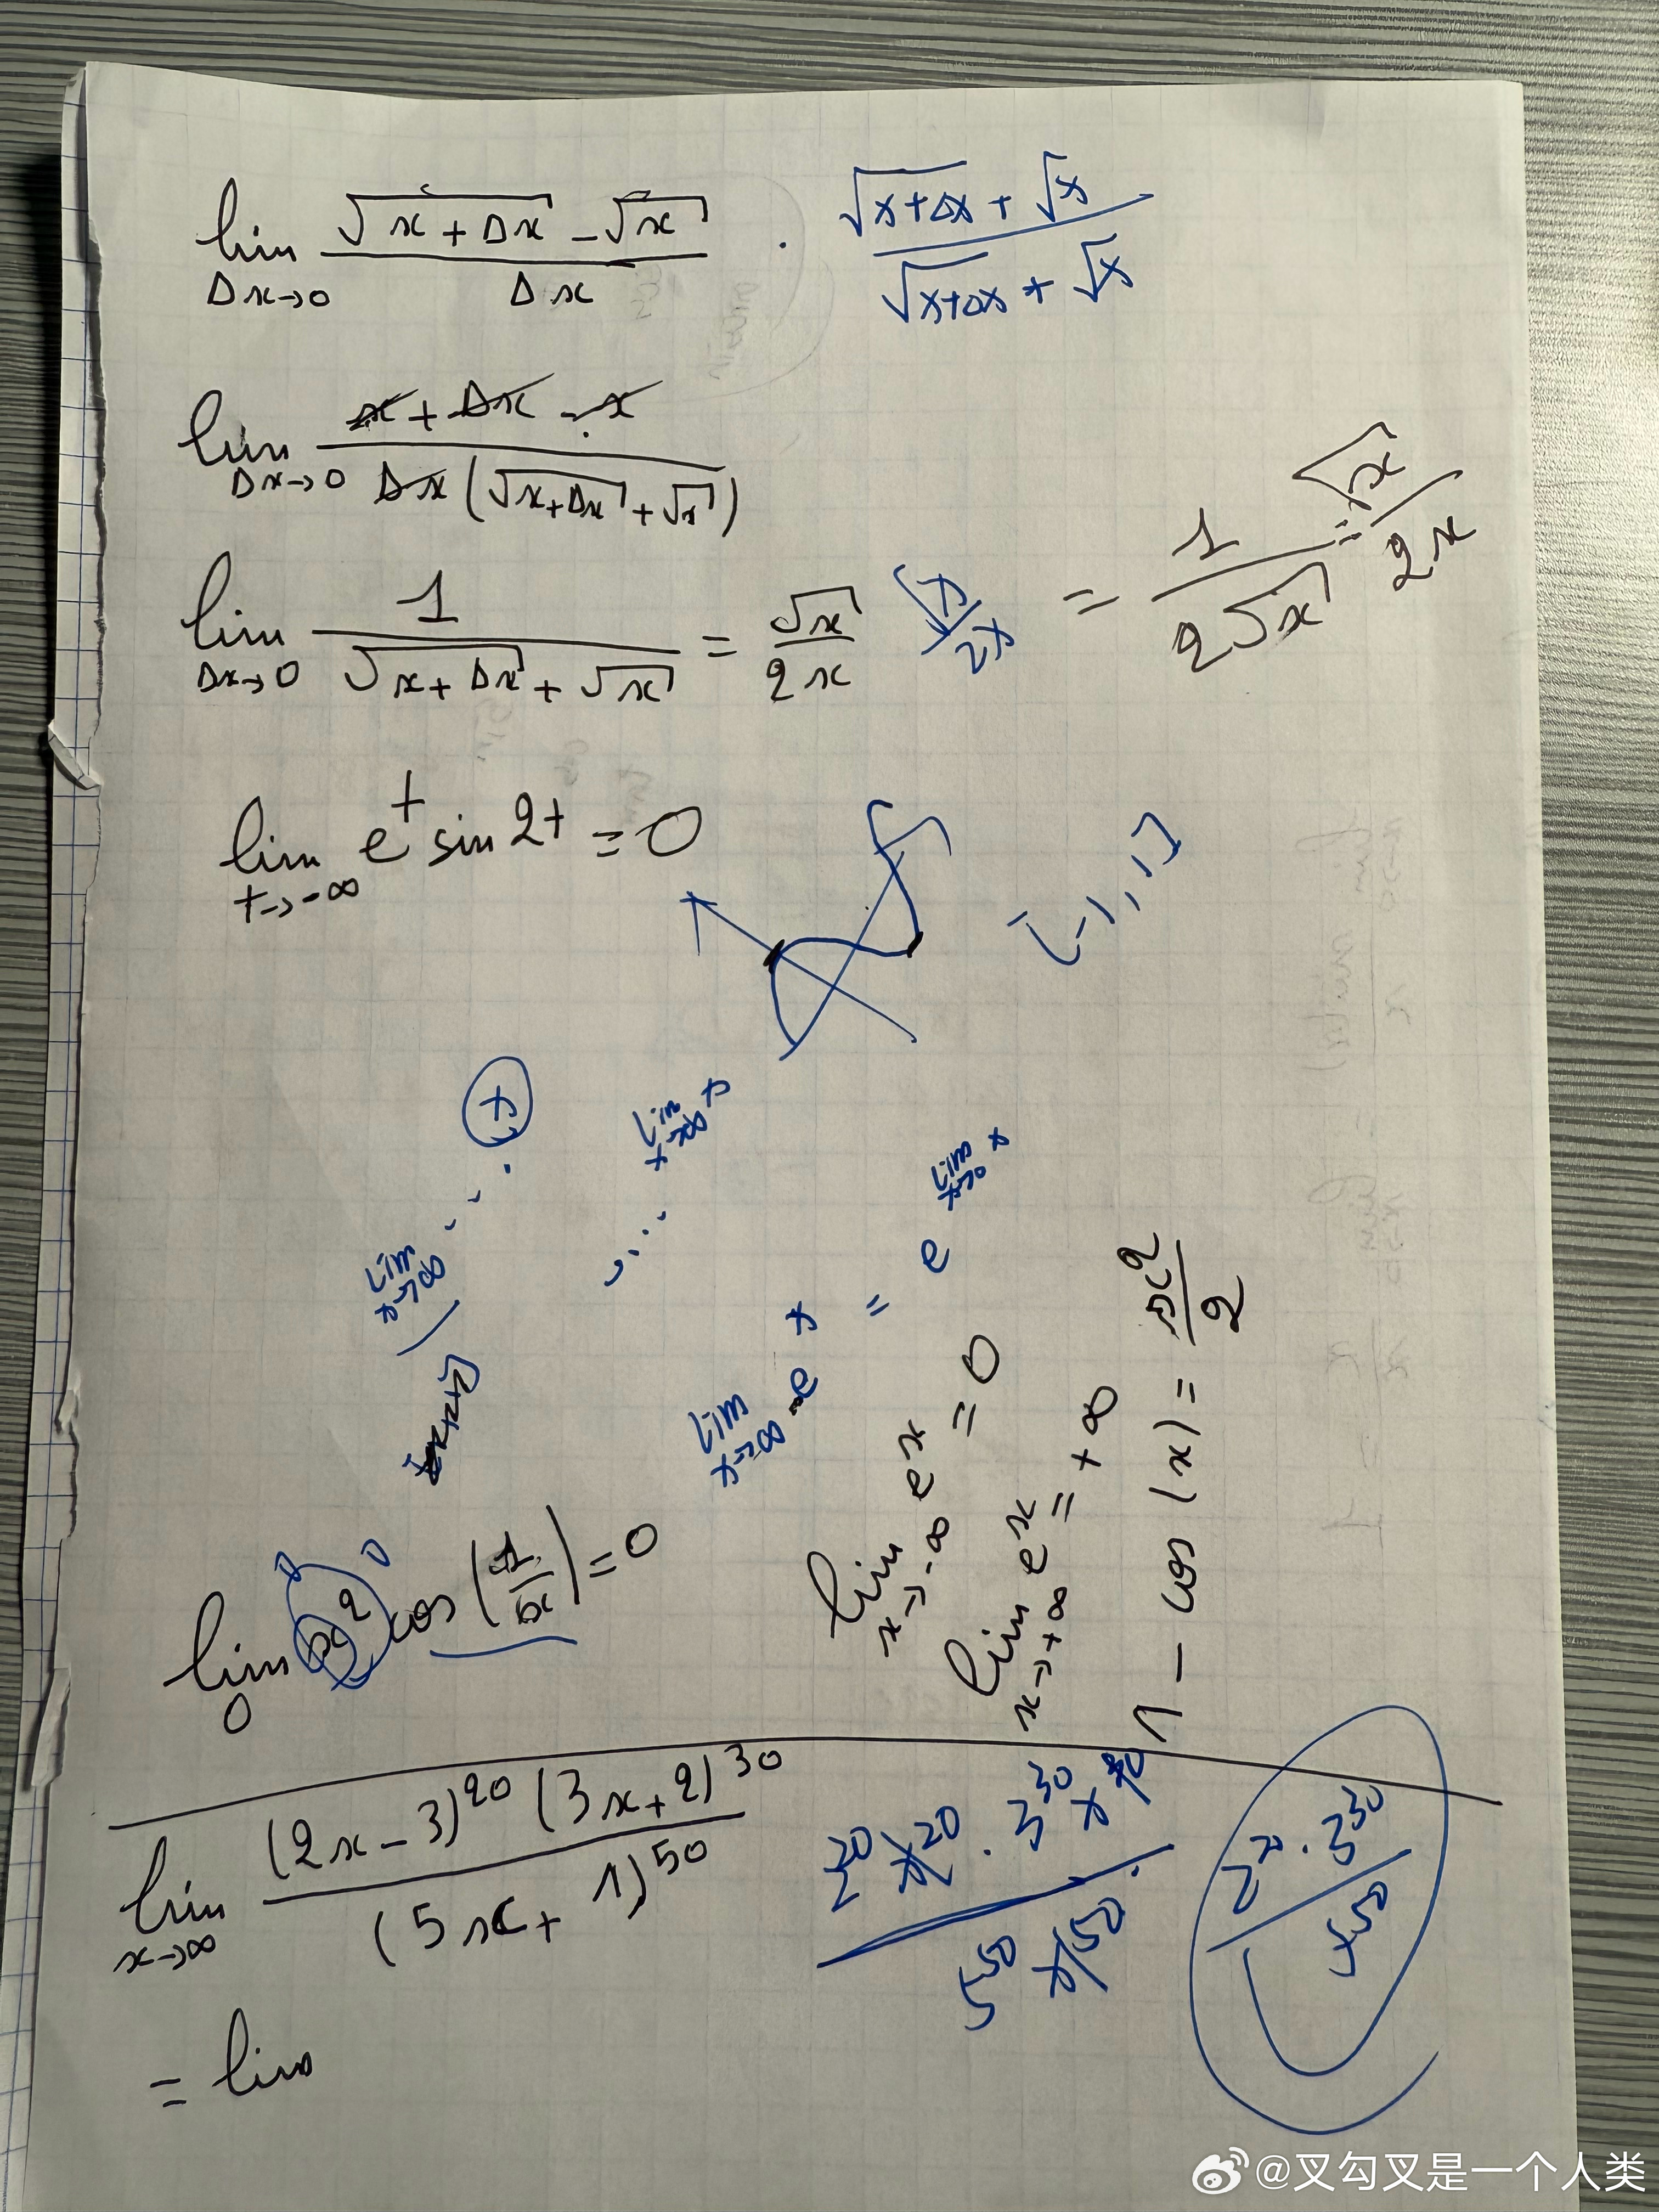 lim Δx→0 (√(x+Δx) − √x) / Δx · (√(x+Δx) + √x) / (√(x+Δx) + √x)
lim Δx→0 (x + Δx − x) / (Δx (√(x+Δx) + √x))
lim Δx→0 1 / (√(x+Δx) + √x) = √x / 2x √x / 2x = 1 / 2√x = √x / 2x
lim t→-∞ e^t sin 2t = 0
[-1, 1]
x
lim x→∞
lim x→∞ x
lim x→∞ e^x = e^(lim x→0 x)
lim x→-∞ e^x = 0
lim x→+∞ e^x = +∞
1 − cos(x) = x²/2
lim 0 x² cos(1/x) = 0
lim x→∞ (2x − 3)^20 (3x + 2)^30 / (5x + 1)^50
2^20 x^20 · 3^30 x / 5^50 x^50
2^20 · 3^30 / 5^50
= lim
@叉勾叉是一个人类